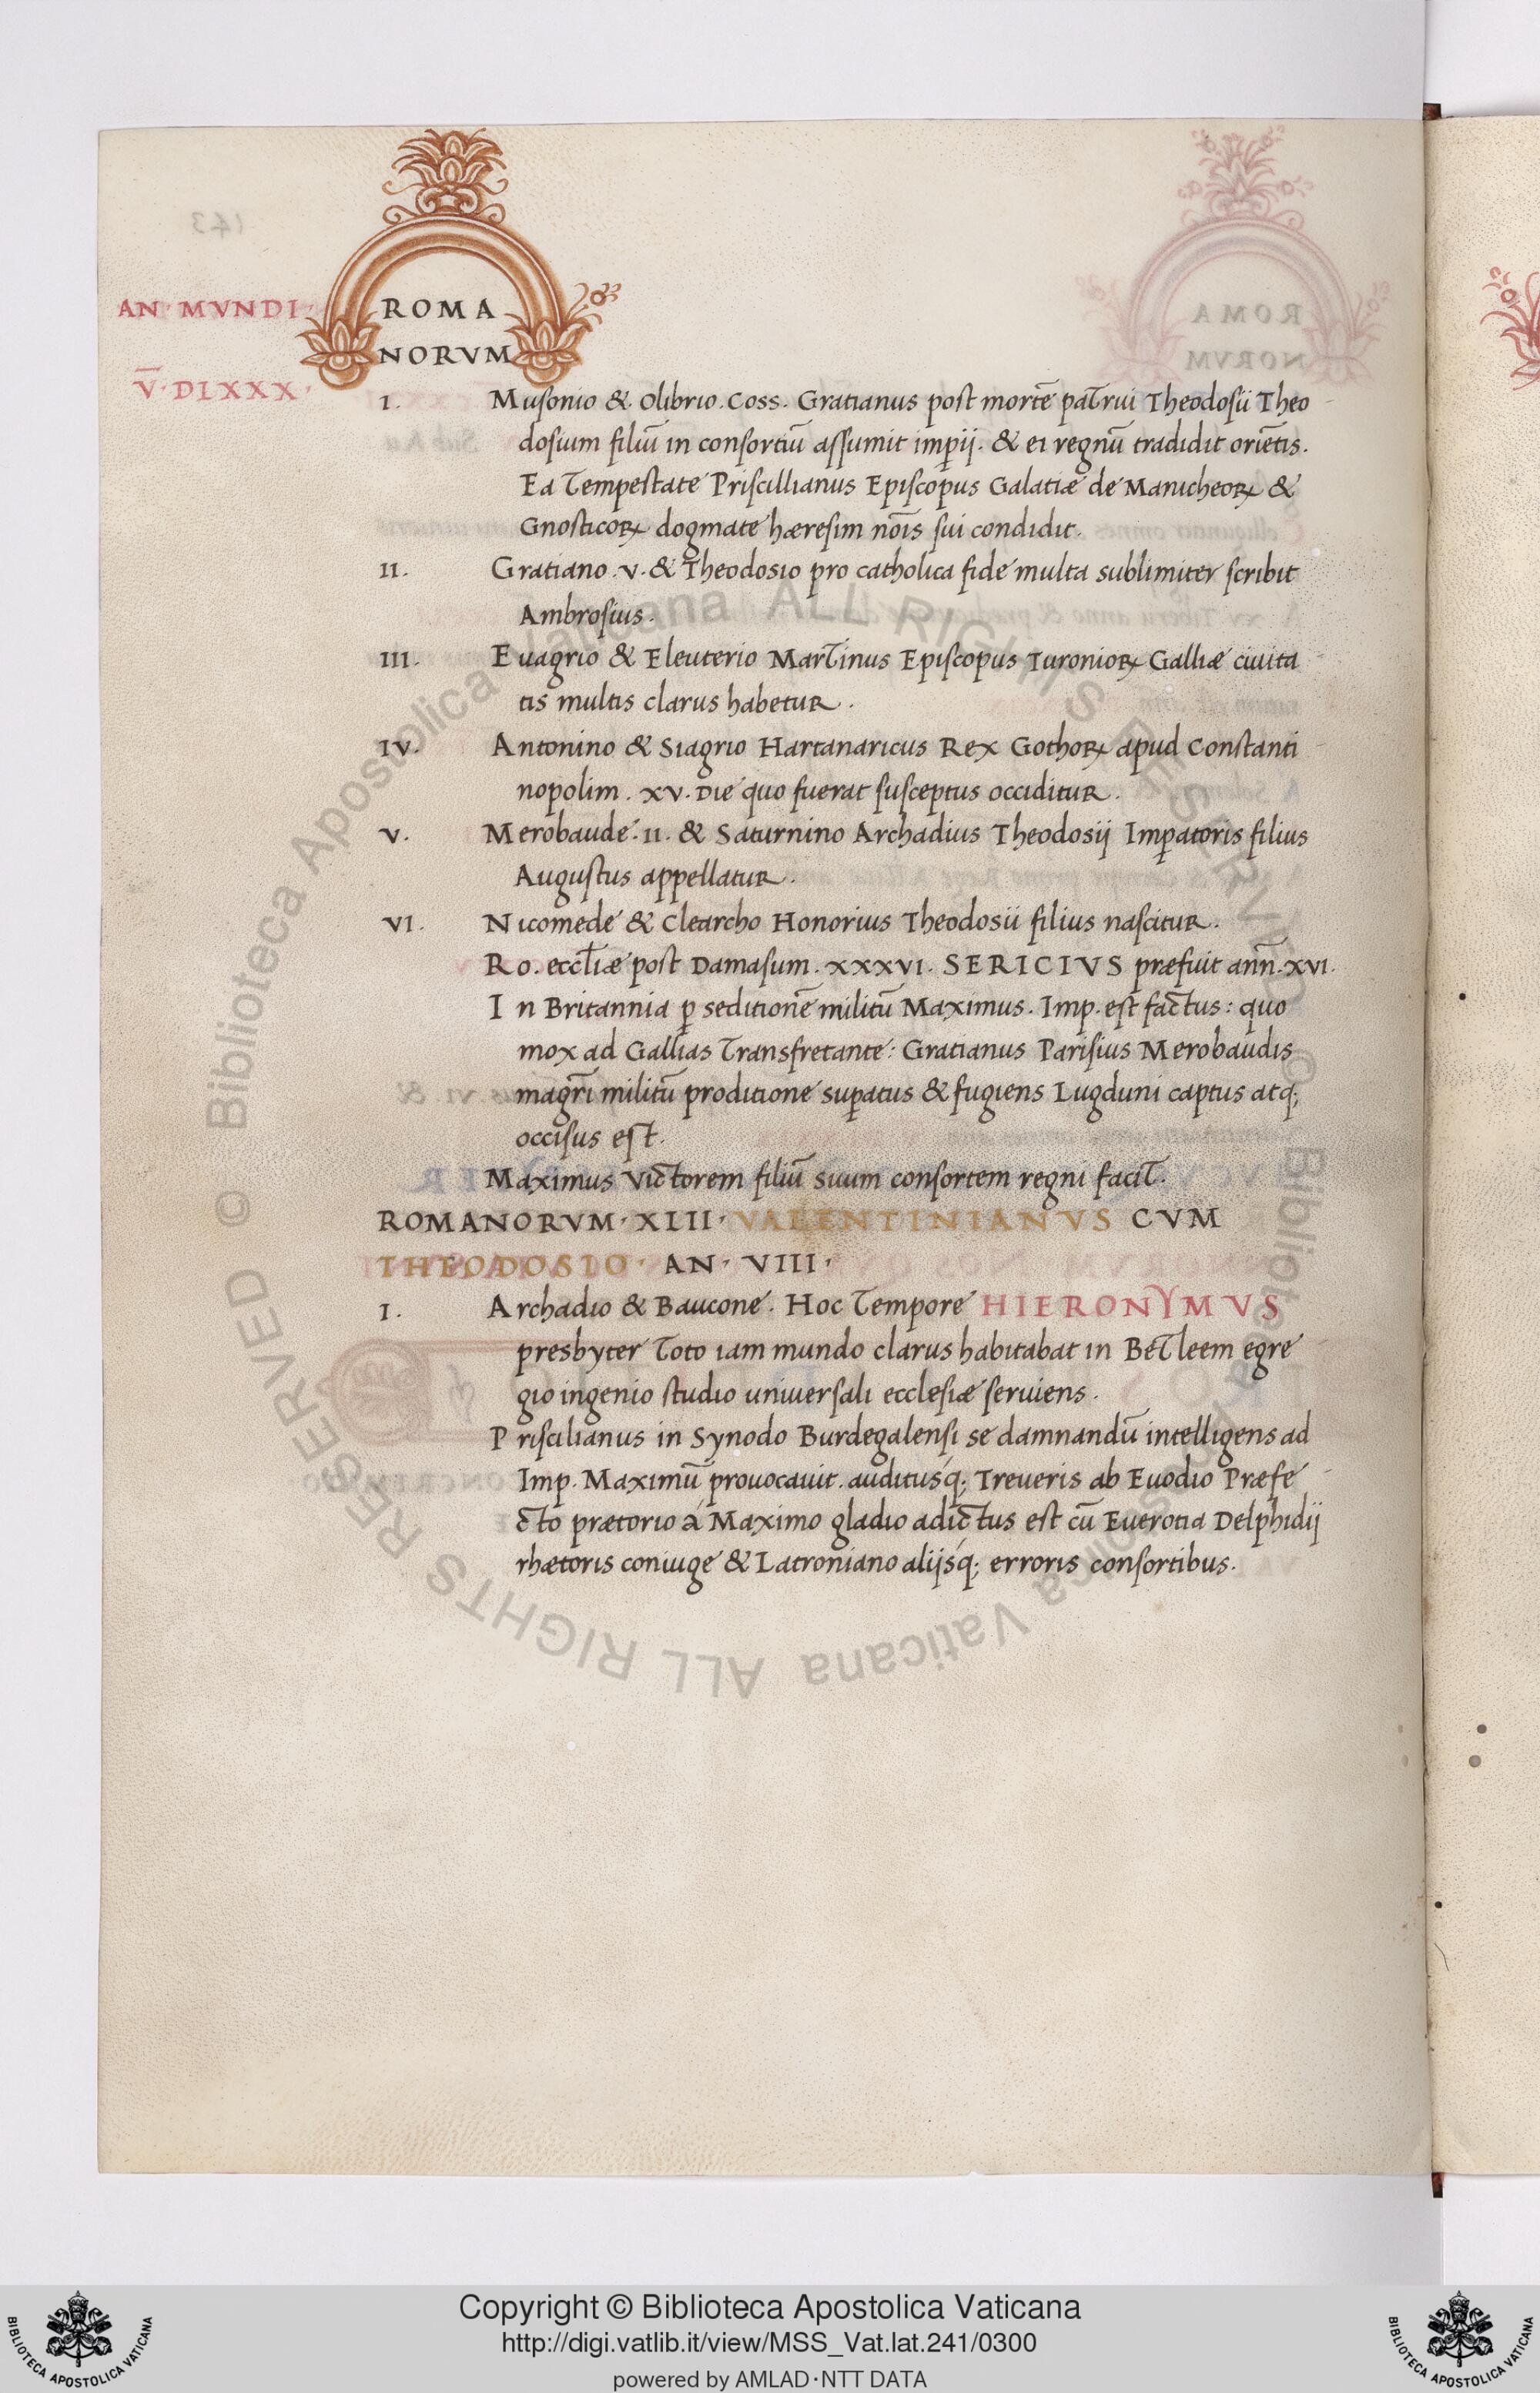 ROMA
AN · MVNDI ·
NORVM
V̅ · DLXXX ·
I. Musonio & Olibrio. Coss. Gratianus post mortē patrui Theodosii Theo
dosium filiū in consortiū assumit imperij. & ei regnū tradidit oriētis.
Ea Tempestate Priscillianus Episcopus Galatiæ de Manicheoꝝ &
Gnosticoꝝ dogmate hæresim nōis sui condidit.
II. Gratiano . v. & Theodosio pro catholica fide multa sublimiter scribit
Ambrosius.
III. Evagrio & Eleuterio Martinus Episcopus Turonioꝝ Galliæ ciuita
tis multis clarus habetur.
IV. Antonino & Siagrio Hartanaricus Rex Gothoꝝ apud Constanti
nopolim . XV. Die quo fuerat susceptus occiditur.
V. Merobaude . II. & Saturnino Archadius Theodosij Imꝑatoris filius
Augustus appellatur.
VI. Nicomede & Clearcho Honorius Theodosii filius nascitur.
Ro. eccl̄iæ post Damasum . XXXVI. SERICIVS præfuit ann̄. XVI.
In Britannia ꝑ seditionē militū Maximus. Imp. est factus: quo
mox ad Gallias Transfretante: Gratianus Parisius Merobaudis
magr̄i militū proditione suꝑatus & fugiens Lugduni captus atq;
occisus est.
Maximus Victorem filiū suum consortem regni facit.
ROMANORVM · XLII · VALENTINIANVS CVM
THEODOSIO · AN · VIII ·
I. Archadio & Baucone. Hoc Tempore HIERONYMVS
presbyter Toto iam mundo clarus habitabat in Betleem egre
gio ingenio studio uniuersali ecclesiæ seruiens.
Priscilianus in Synodo Burdegalensi se damnandū intelligens ad
Imp. Maximū prouocauit. auditusq́; Treueris ab Euodio Præfe
cto prætorio à Maximo gladio adictus est cū Euerotia Delphidij
rhætoris coniuge & Latroniano alijsq́; erroris consortibus.
Copyright © Biblioteca Apostolica Vaticana
http://digi.vatlib.it/view/MSS_Vat.lat.241/0300
powered by AMLAD·NTT DATA